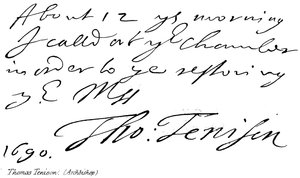 About 12 ys morning
I called at ye Chamber
in order to ye restoring
ye Mss
Tho: Tenison
1690.
Thomas Tenison (Archbishop)